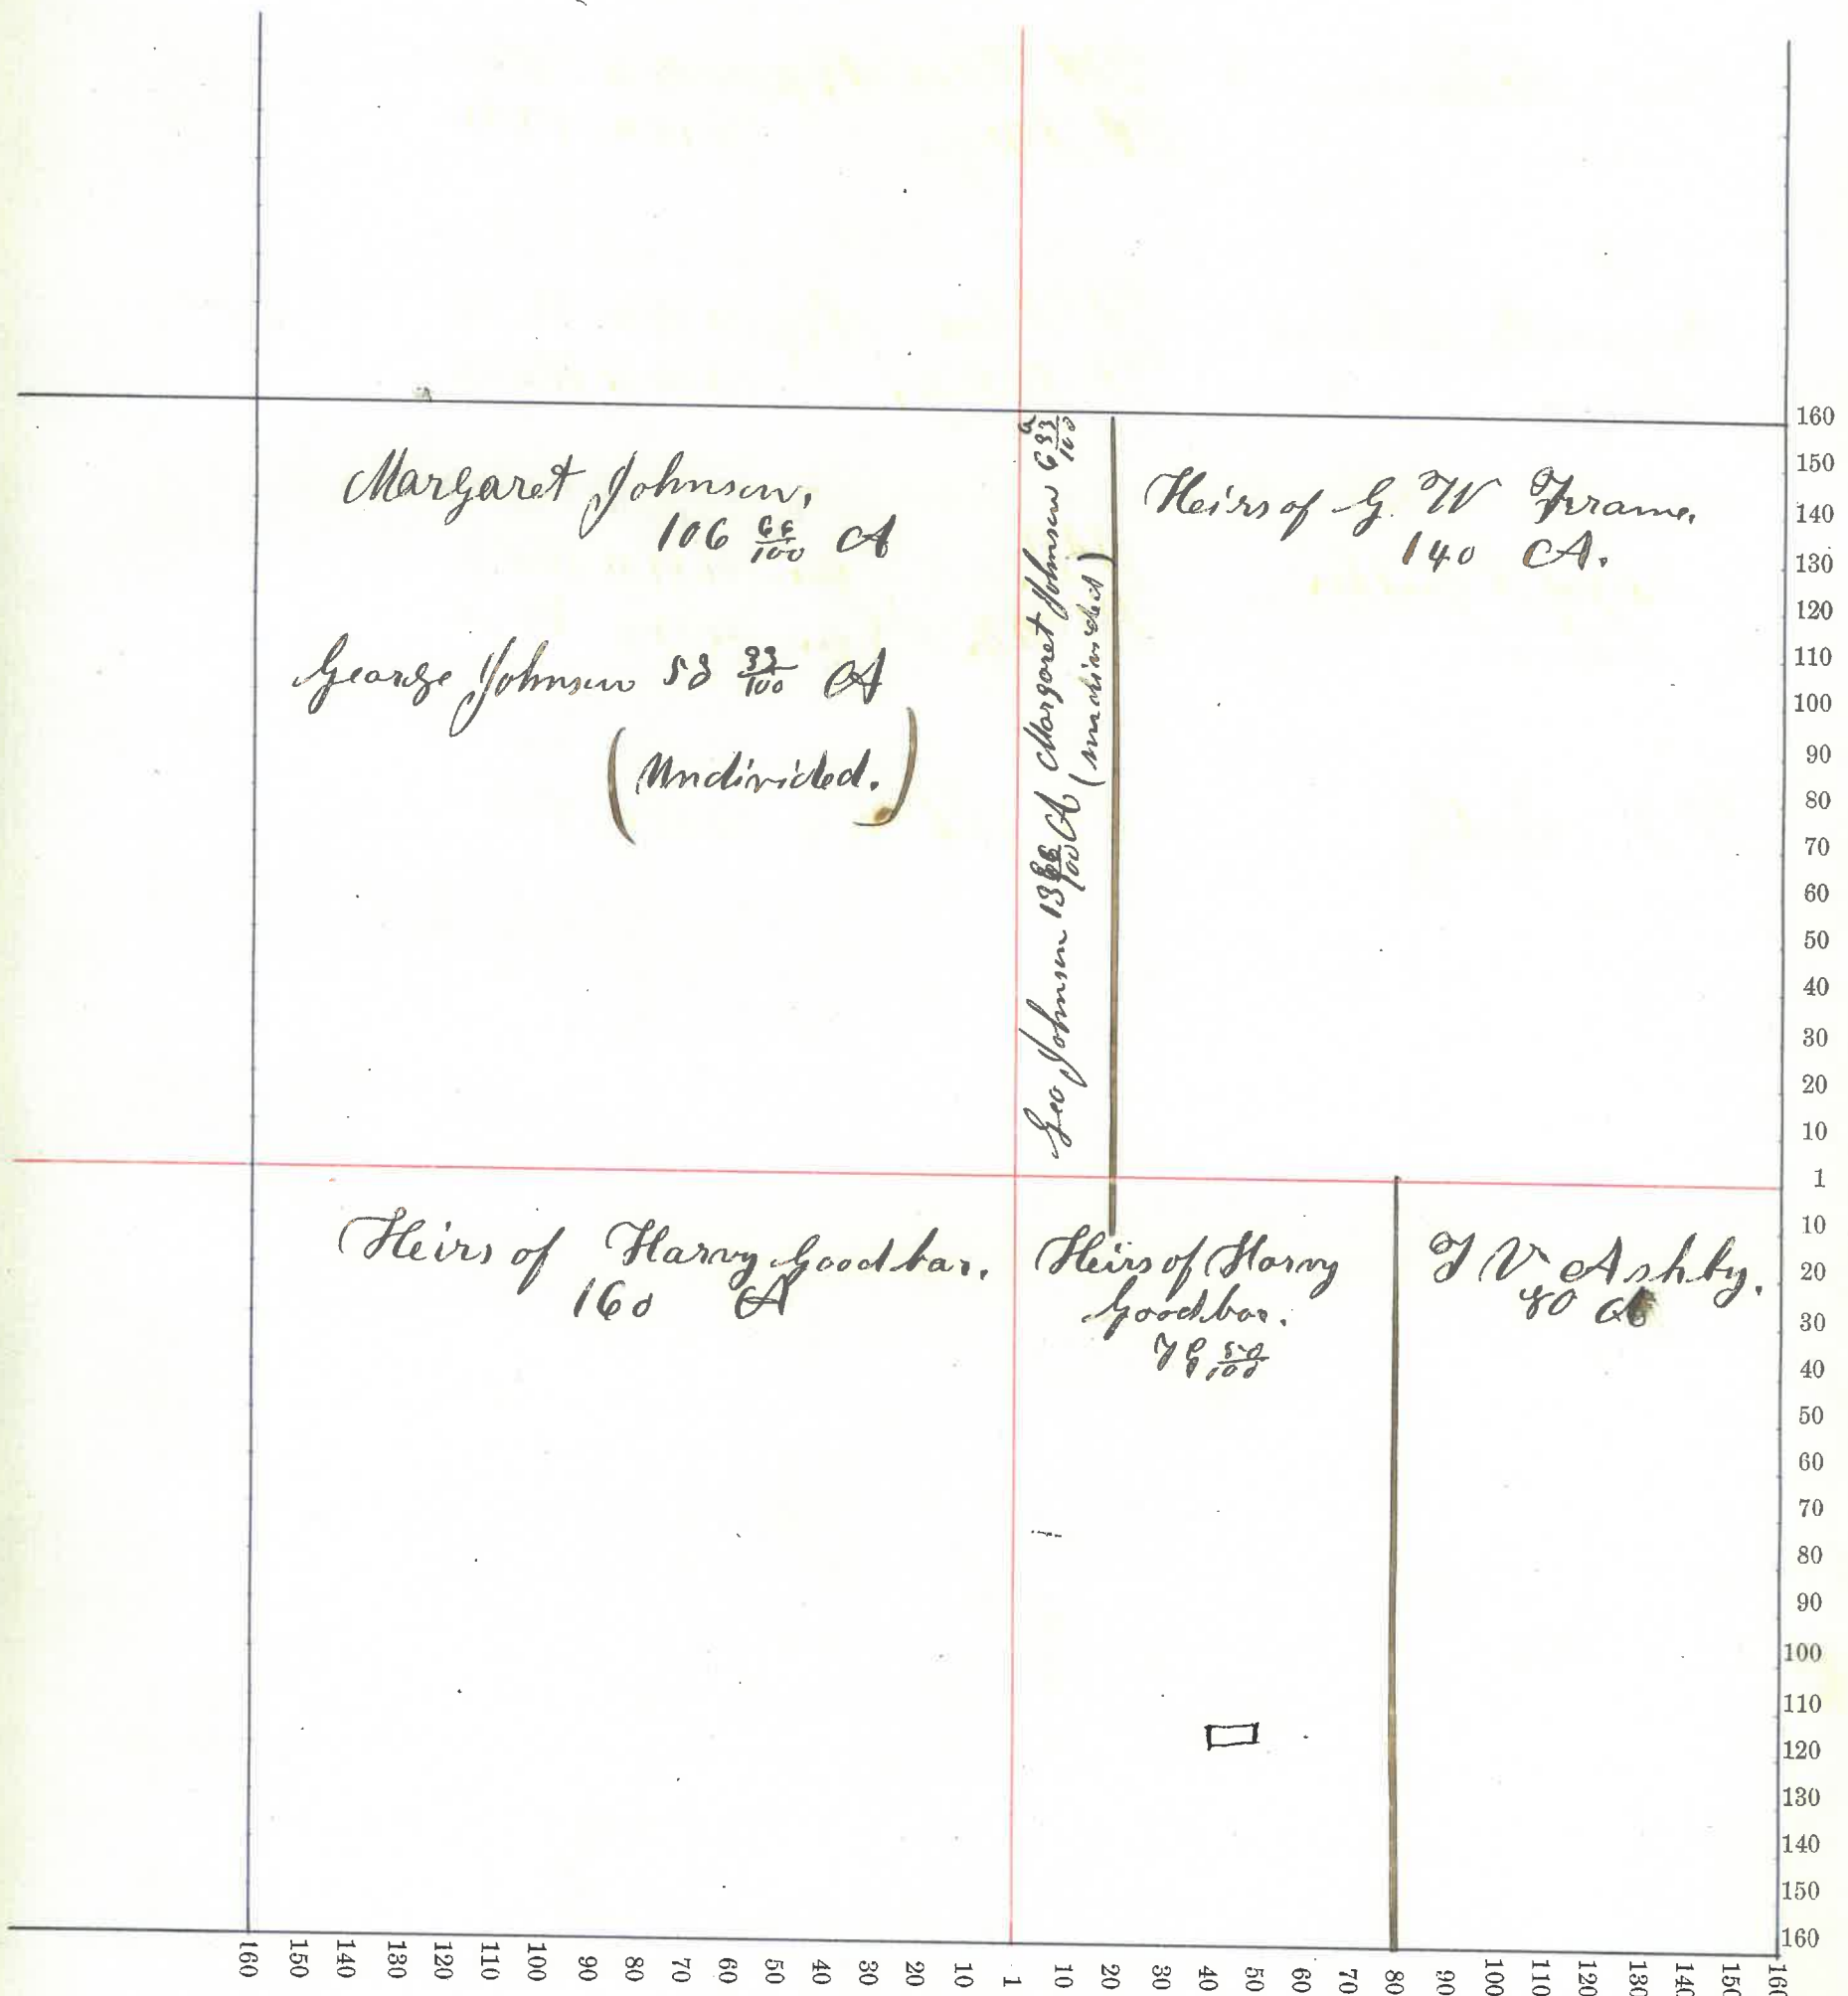 Margaret Johnson,
106 66/100 A
George Johnson 53 33/100 A
(Undivided.)
Geo Johnson 13 66/100 A Margaret Johnson 6 33/100 a
(undivided)
Heirs of G. W Frame.
140 A.
Heirs of Harvy Goodbar.
160 A
Heirs of Harvy
Goodbar.
79 50/100
T V Ashby.
80 A
160
150
140
130
120
110
100
90
80
70
60
50
40
30
20
10
1
10
20
30
40
50
60
70
80
90
100
110
120
130
140
150
160
160 150 140 130 120 110 100 90 80 70 60 50 40 30 20 10 1 10 20 30 40 50 60 70 80 90 100 110 120 130 140 150 160